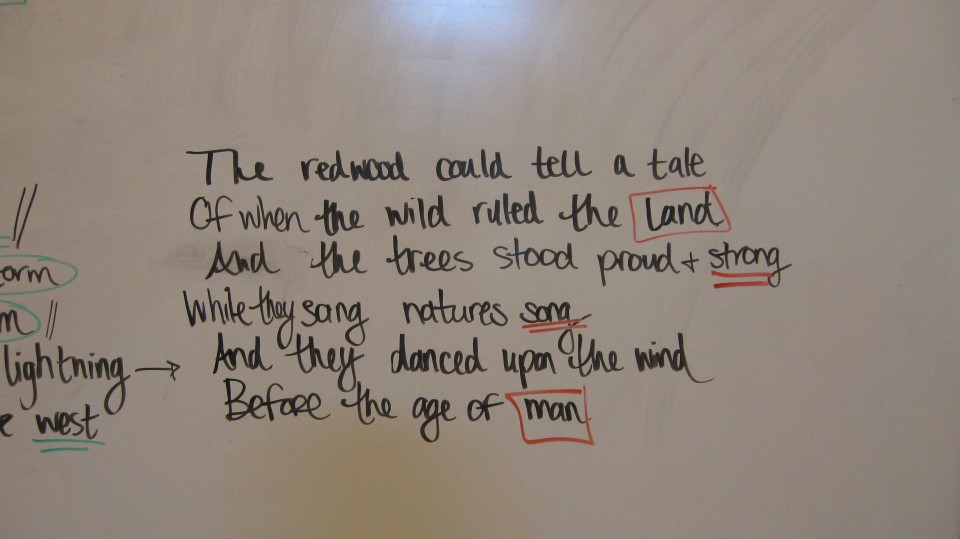 orm
m
lightning →
e west
The redwood could tell a tale
Of when the wild ruled the land
And the trees stood proud + strong
While they sang natures song
And they danced upon the wind
Before the age of man